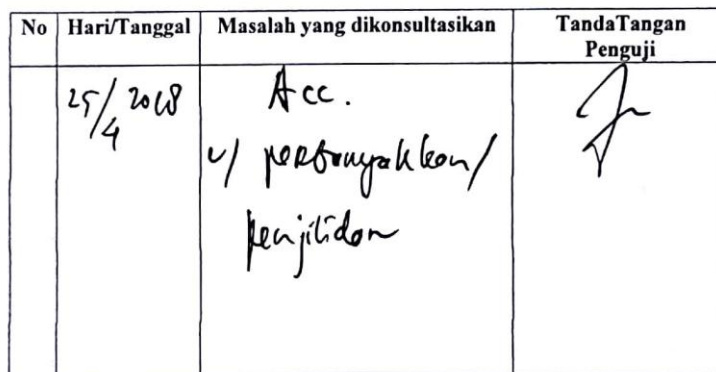 No Hari/Tanggal Masalah yang dikonsultasikan TandaTangan
Penguji
25/4 2018 Acc.
u/ perbanyakkan/
penjilidan